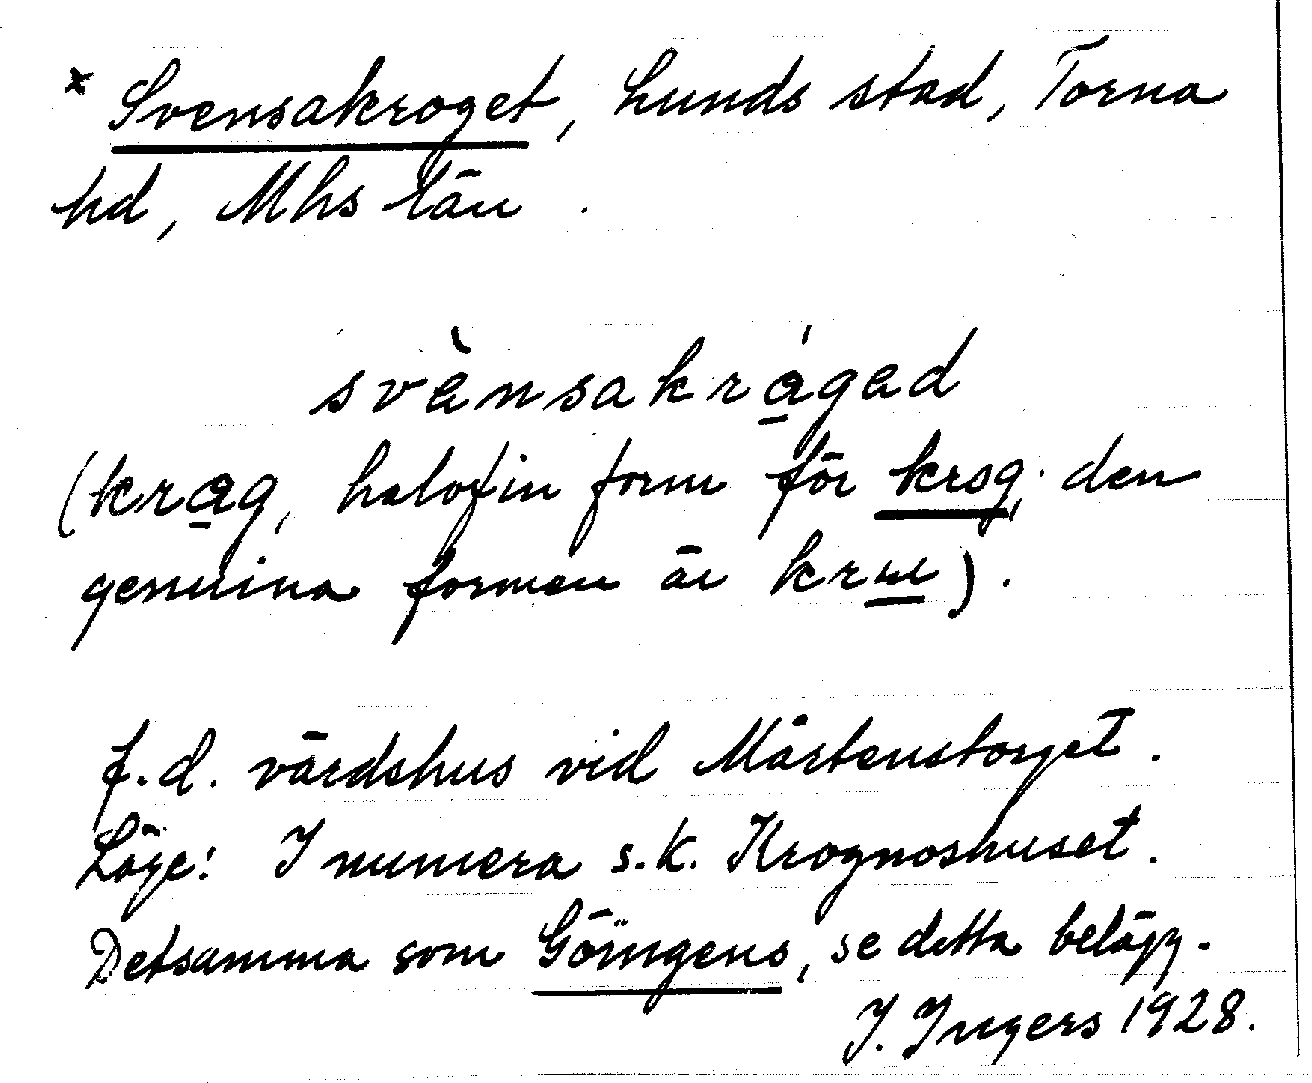 * Svensakroget, Lunds stad, Torna
hd, Mhs län.
svènsakrágad
(krag, halvfin form för krog; den
genuina formen är krω).
f.d. värdshus vid Mårtenstorget.
Läge: I numera s.k. Krognoshuset.
Detsamma som Göingens, se detta belägg.
I. Ingers 1928.